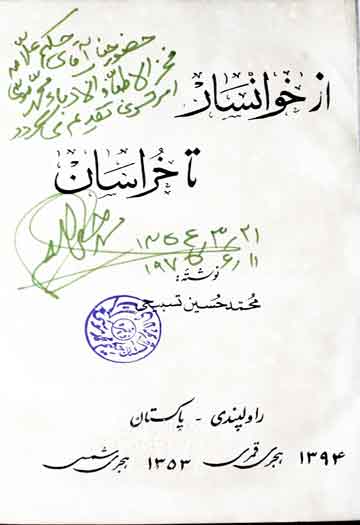 حضور جناب آقای حکیم علامه
فخر الاطباء و الادباء محمد موسی
امرتسری تقدیم می گردد
از خوانسار
تا خراسان
۲۱ر۳ر۱۳۵۴
۱۱ر۶ر۱۹۷۵
نوشته:
محمد حسین تسبیحی
راولپندی - پاکستان
۱۳۹۴ هجری قمری ۱۳۵۳ هجری شمسی